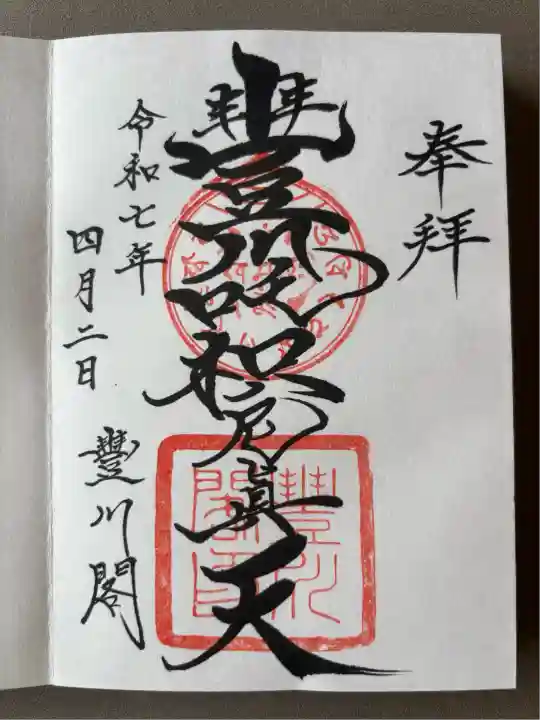 奉拝
豊川吒枳尼真天
令和七年
四月二日
豊川閣
豊川閣印